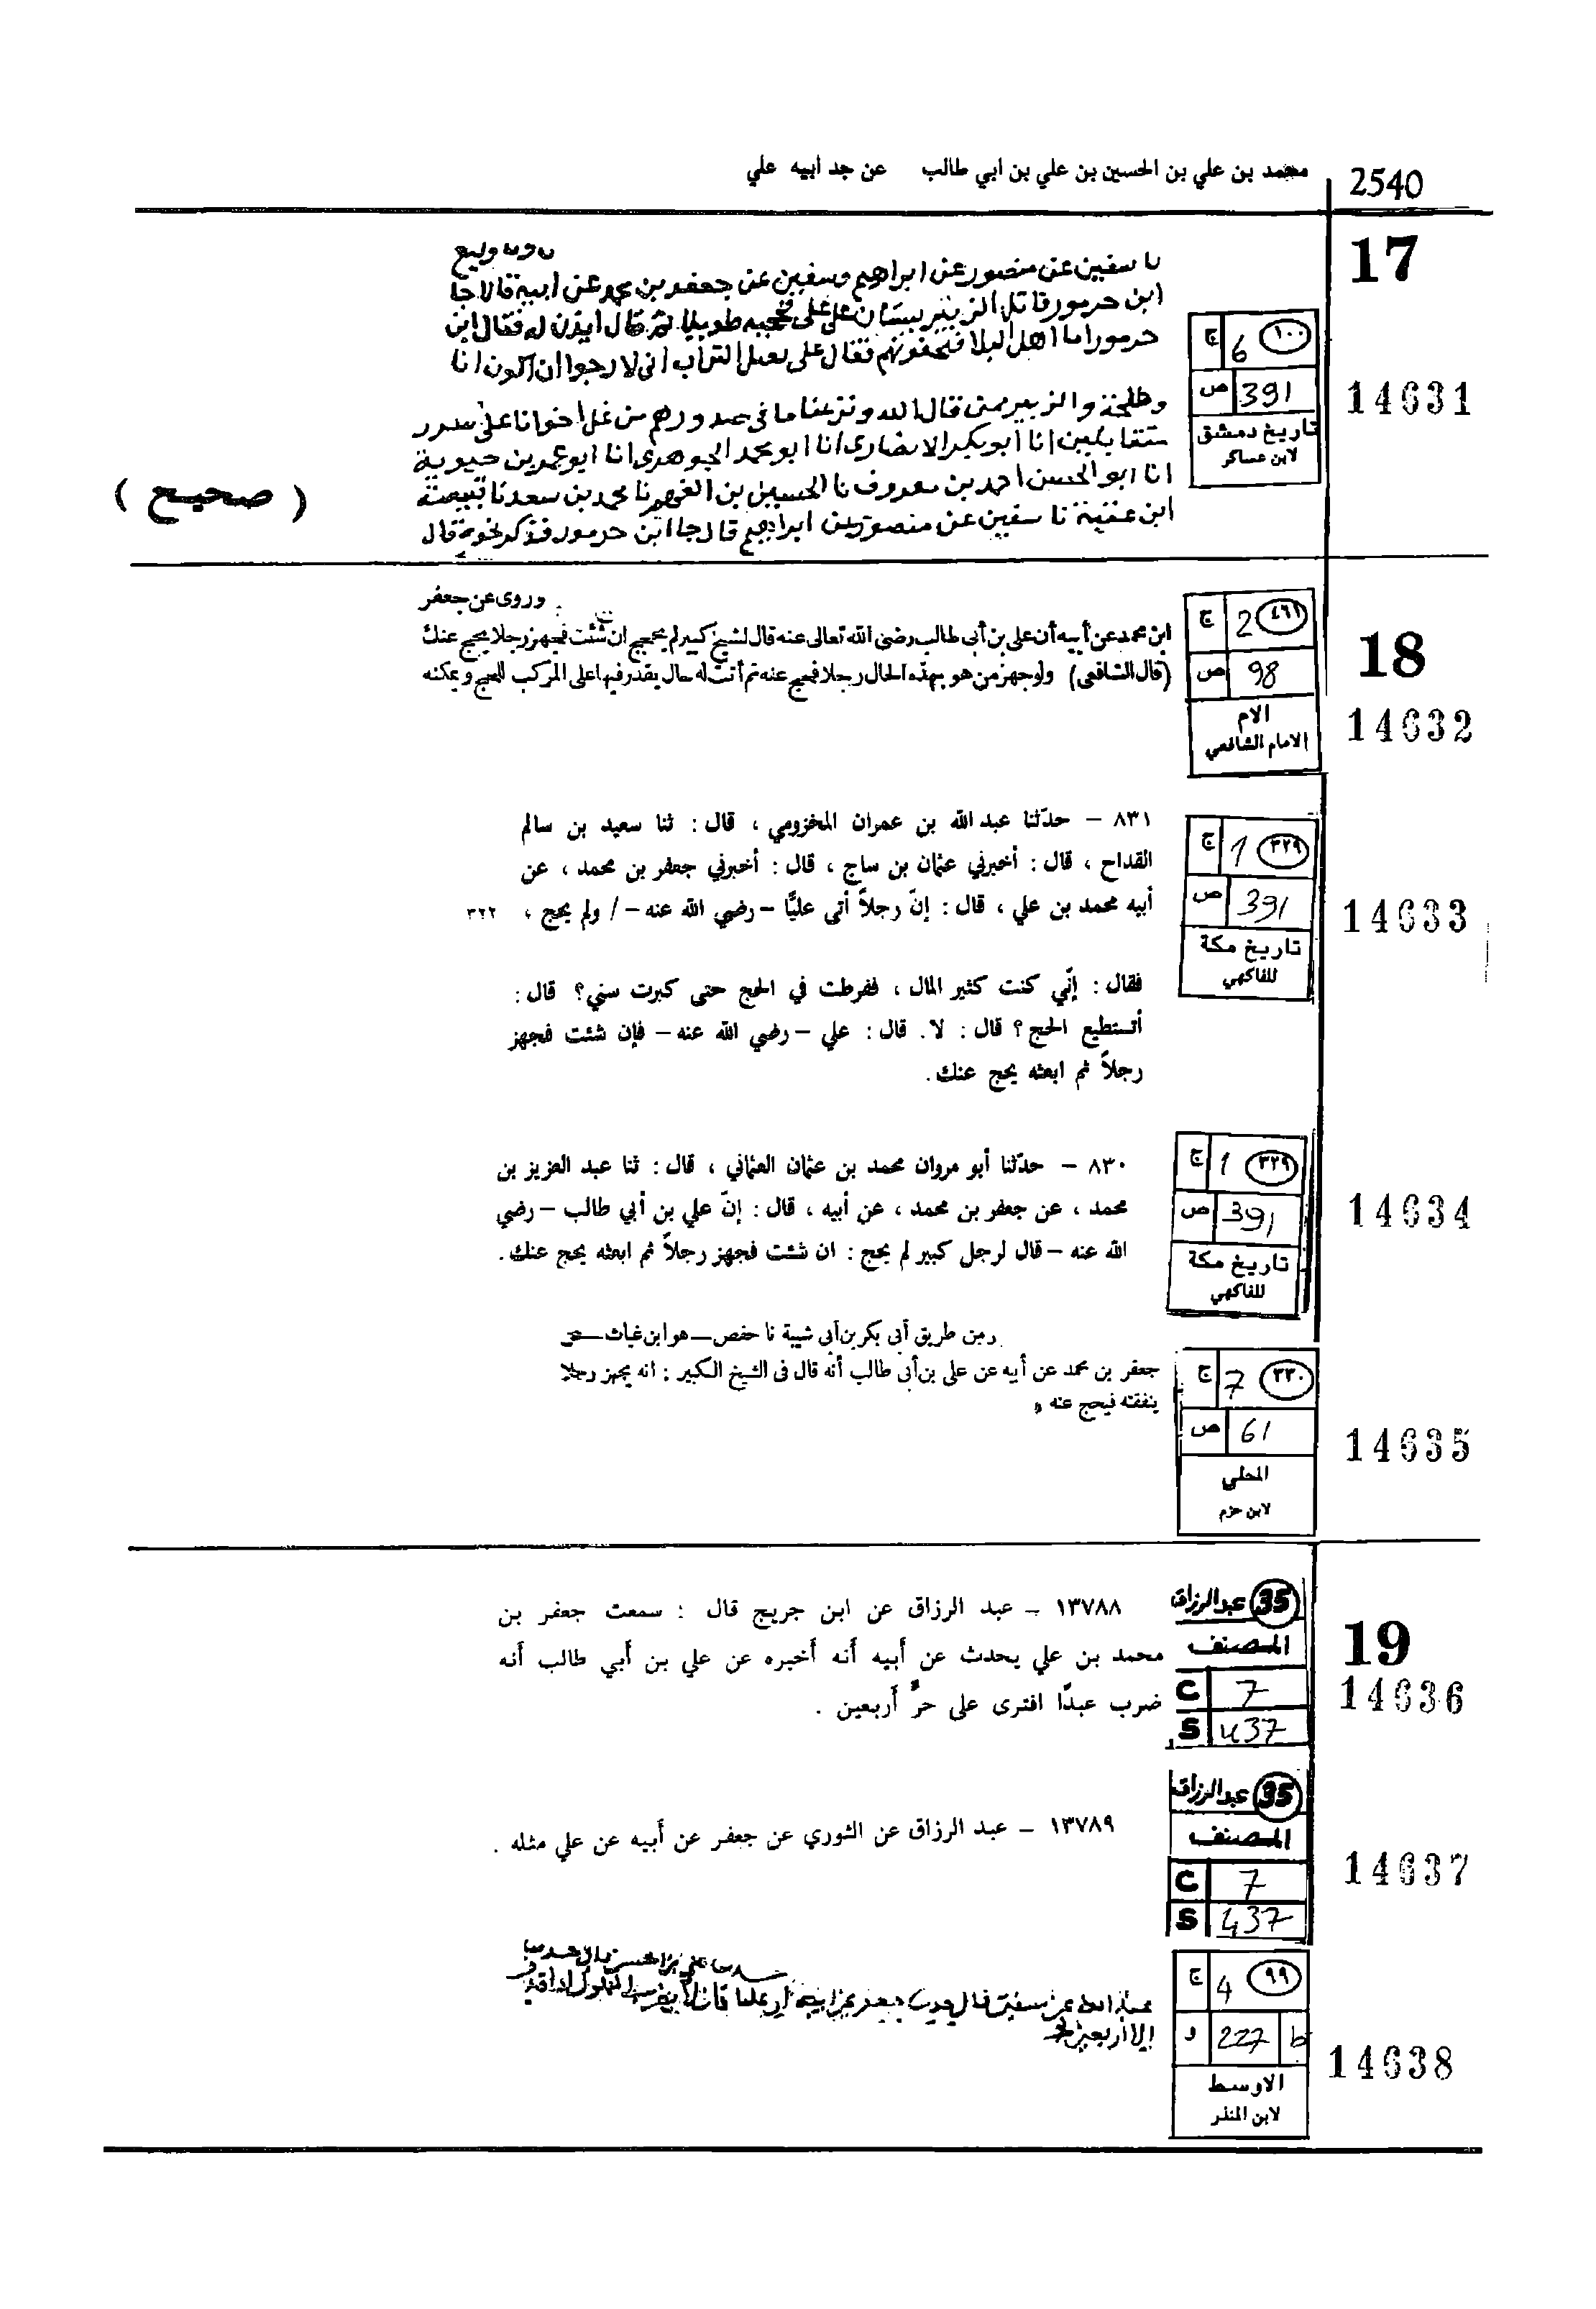 2540
محمد بن علي بن الحسين بن علي بن ابي طالب عن جد ابيه علي
17
14631
ج 6 ١٠٠
ص 391
تاريخ دمشق
لابن عساكر
نا سفين عن منصور عن ابراهيم وسفين عن جعفر بن محمد عن ابيه قالا جا
ابن جرموز قاتل الزبير يستأذن على علي فحجبه طويلا ثم قال ايذن له فقال ابن
جرموز اما اهل البلا فتجفوهم فقال علي بفيك التراب اني لارجوا ان اكون انا
وطلحة والزبير ممن قال الله ونزعنا ما في صدورهم من غل اخوانا على سرر
متقابلين انا ابو بكر الانصاري انا ابو محمد الجوهري انا ابو عمر بن حيوية
انا ابو الحسن احمد بن معروف نا الحسين بن الفهم نا محمد بن سعد نا قبيصة
ابن عقبة نا سفين عن منصور عن ابراهيم قال جا ابن جرموز فذكر نحوه قال
( صحيح )
18
14632
ج 2 ٤٦١
ص 98
الام
الامام الشافعي
وروى عن جعفر
ابن محمد عن أبيه أن على بن أبى طالب رضى الله تعالى عنه قال لشيخ كبير لم يحجج ان شئت فجهز رجلا يحج عنك
(قال الشافعى) ولو جهز من هو بهذه الحال رجلا فحج عنه ثم أتت له حال يقدر فيها على المركب للحج ويمكنه
14633
ج 1 ٣٢٩
ص 391
تاريخ مكة
للفاكهي
٨٣١ – حدّثنا عبد الله بن عمران المخزومي ، قال : ثنا سعيد بن سالم
القداح ، قال : أخبرني عثمان بن ساج ، قال : أخبرني جعفر بن محمد ، عن
أبيه محمد بن علي ، قال : إنّ رجلاً أتى عليًّا – رضي الله عنه – / ولم يحج ، ٣٢٢
فقال : إنّي كنت كثير المال ، ففرطت في الحج حتى كبرت سني؟ قال :
أتستطيع الحج؟ قال : لا. قال : علي – رضي الله عنه – فإن شئت فجهز
رجلاً ثم ابعثه يحج عنك.
14634
ج 1 ٣٢٩
ص 391
تاريخ مكة
للفاكهي
٨٣٠ – حدّثنا أبو مروان محمد بن عثمان العثماني ، قال : ثنا عبد العزيز بن
محمد ، عن جعفر بن محمد ، عن أبيه ، قال : إنّ علي بن أبي طالب – رضي
الله عنه – قال لرجل كبير لم يحج : ان شئت فجهز رجلاً ثم ابعثه يحج عنك.
14635
ج 7 ٣٣٠
ص 61
المحلى
لابن حزم
ومن طريق أبى بكر بن أبى شيبة نا حفص – هو ابن غياث – عن
جعفر بن محمد عن أبيه عن على بن أبى طالب أنه قال فى الشيخ الكبير : انه يجهز رجلا
بنفقته فيحج عنه
19
14636
عبدالرزاق 35
المصنف
C 7
S 437
١٣٧٨٨ – عبد الرزاق عن ابن جريج قال : سمعت جعفر بن
محمد بن علي يحدث عن أبيه أنه أخبره عن علي بن أبي طالب أنه
ضرب عبدًا افترى على حرٍّ أربعين .
14637
عبدالرزاق 35
المصنف
C 7
S 437
١٣٧٨٩ – عبد الرزاق عن الثوري عن جعفر عن أبيه عن علي مثله .
14638
ج 4 ٩٩
و 227 b
الاوسط
لابن المنذر
عبد الله عن سفين قال حدثنا جعفر عن ابيه ان عليا كان لا يضرب المملوك اذا قذف
الا اربعين